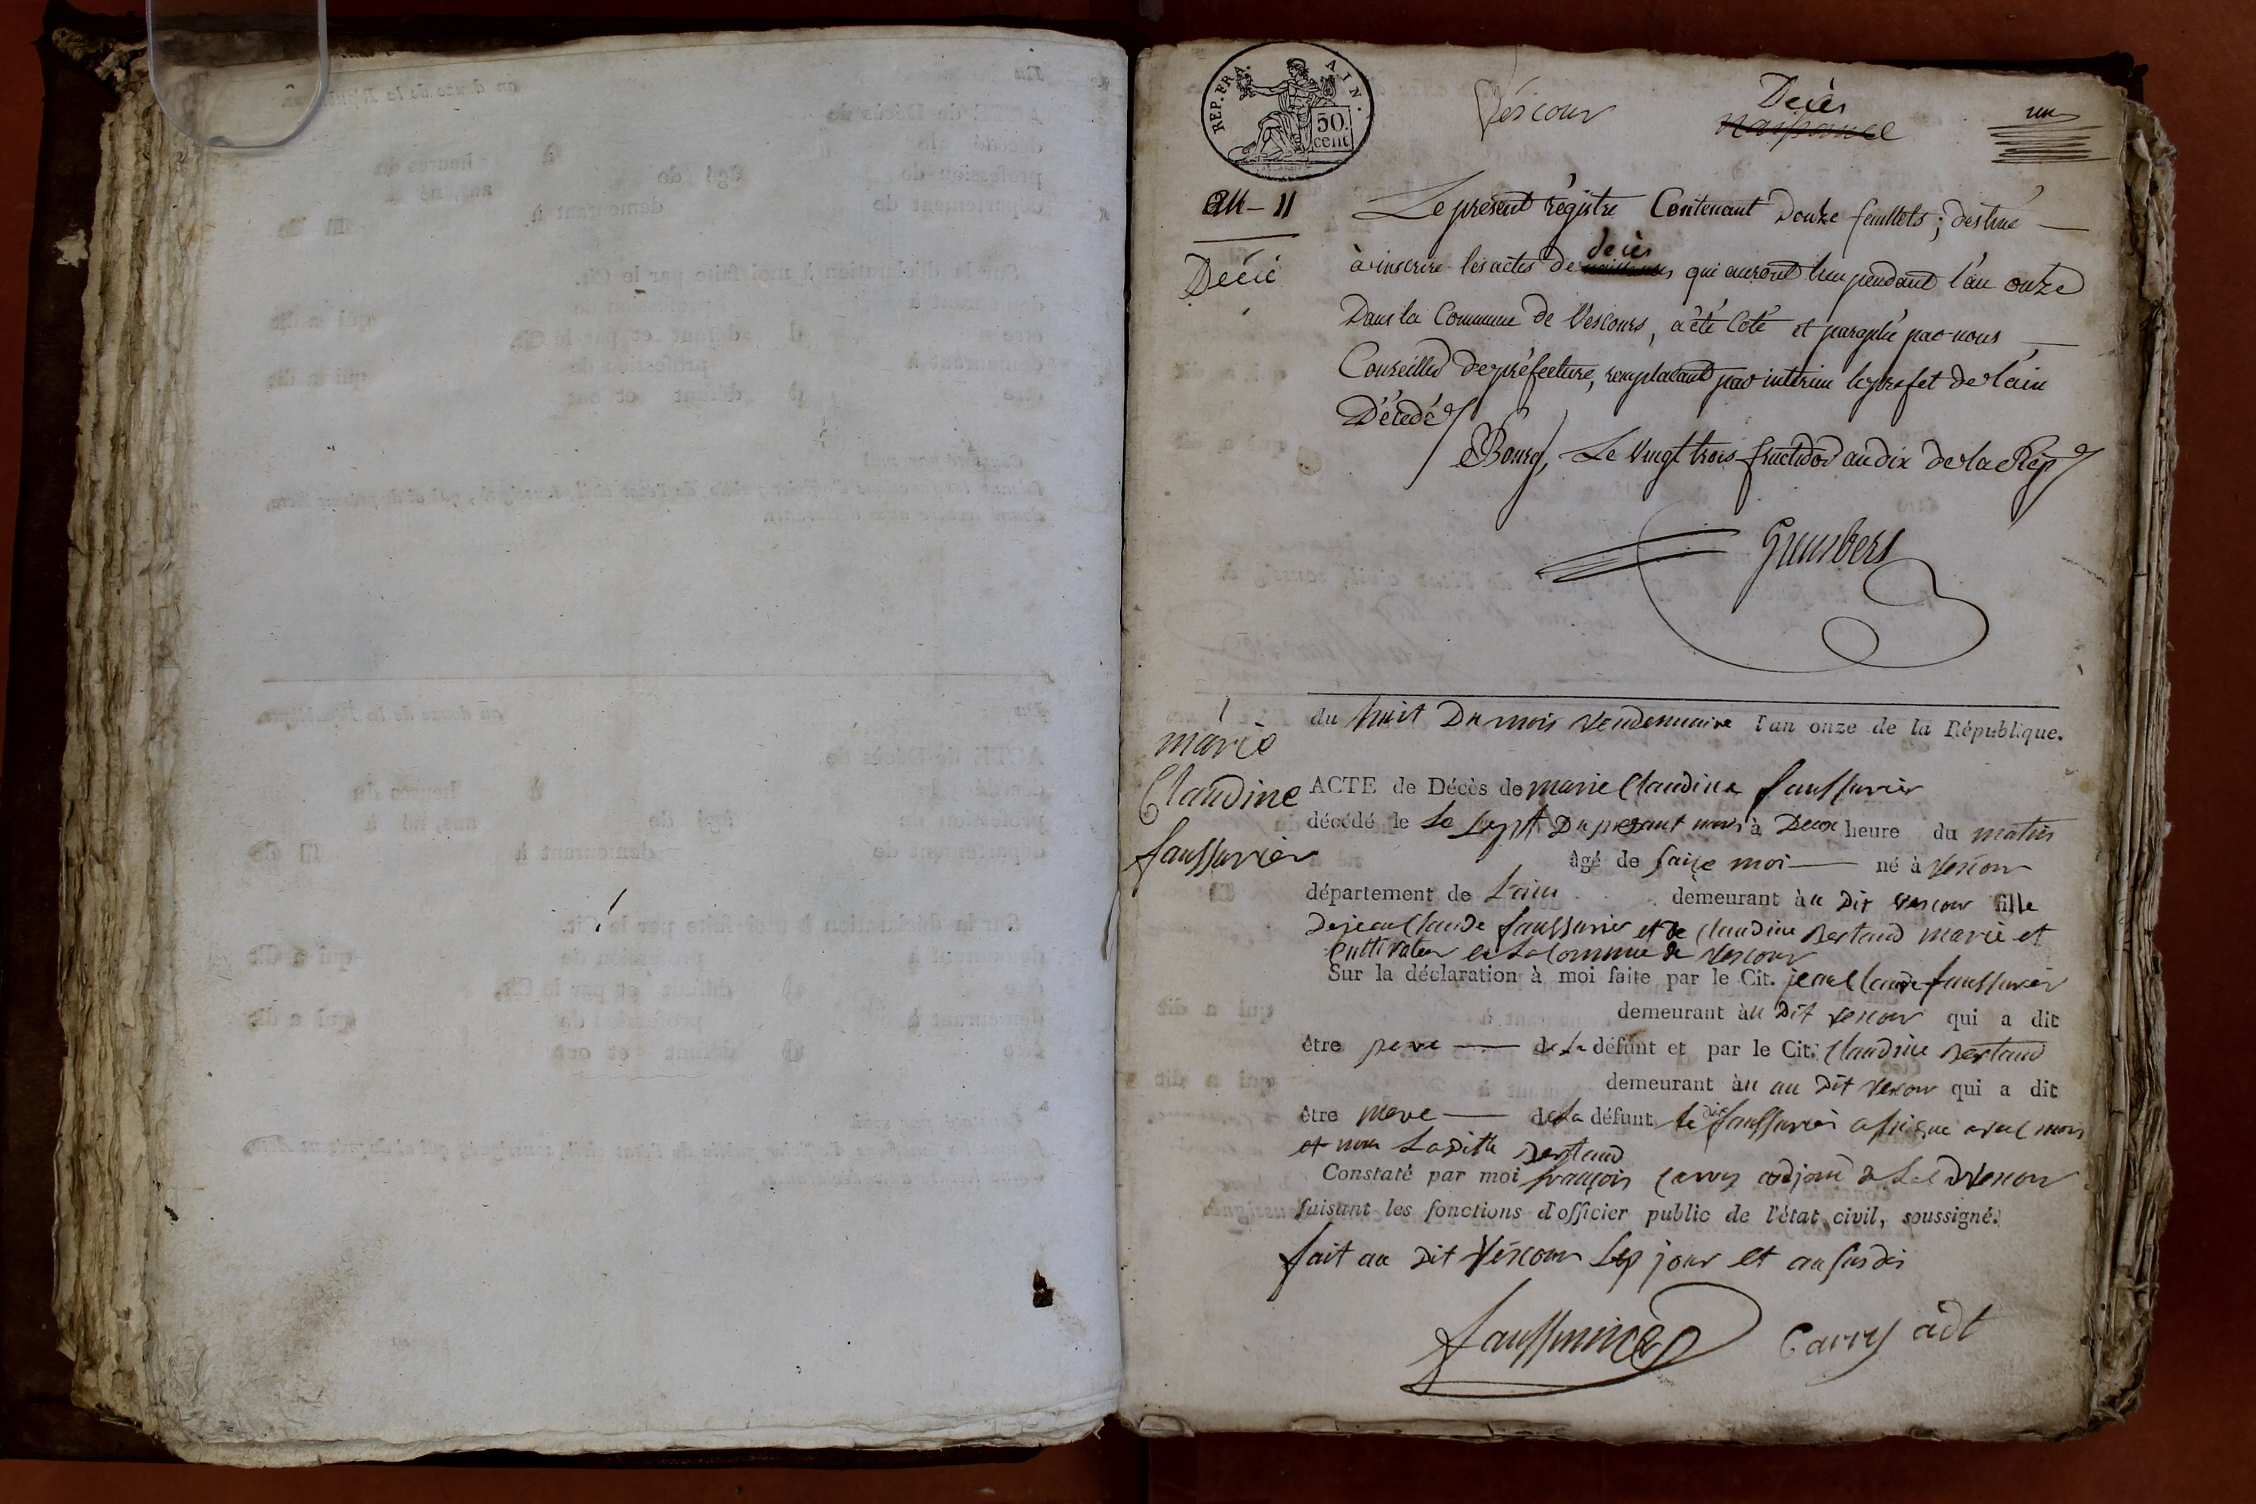 REP. FRA. AIN.
50. cent
Vescour
Decès
naissance
un
an 11
Décé
Le present régistre Contenant Douze feuillets; destiné
à inscrire les actes de naissances decès qui auront lieu pendant l'an onze
Dans la Commune de Vescours, a été Coté et paraphé par nous
Conseiller de préfecture, remplacant par interim le préfet de l'ain
Décédé
Bourg, Le vingt trois fructidor an dix de la Rép
1
marie
Claudine
faussurier
du huit Du mois vendemiaire l'an onze de la République.
ACTE de Décès de marie Claudine faussurier
décédé le Le sept Du présent mois à Deux heure du matin
âgé de saize moi né à vescour
département de L'ain demeurant à u Dit vescour fille
De jean Claude faussurier et de Claudine Bertaud marie et
Cultivateur en La Commune de vescour
Sur la déclaration à moi faite par le Cit. jean Claude faussurier
demeurant à u Dit vescour qui a dit
être pere de La défunt et par le Cit. Claudine Bertaud
demeurant à u au Dit vescour qui a dit
être mere de La défunt le dit faussurier a signé avec moi
et non Ladite Bertaud
Constaté par moi françois Carry adjoint de
faisant les fonctions d'officier public de l'état civil, soussigné.
fait au Dit Vescour Les jour et an susdis
faussurier
Carry adt